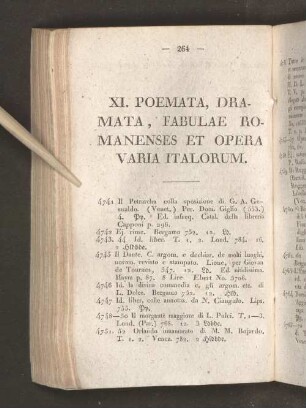 — 264 —
XI. POEMATA, DRA-
MATA, FABULAE RO-
MANENSES ET OPERA
VARIA ITALORUM.
4741 Il Petrarcha colla sposizione di G. A. Ge-
sualdo. (Venet.) Per. Dom. Giglio (553.)
4. Ed. infreq. Catal. della libreria
Capponi p. 296.
4742 Ej. rime. Bergamo 752. 12.
4743. 44 Id. libro. T. 1, 2. Lond. 784. 16.
4745 Il Dante. C. argom. e dechiar. de molti luoghi,
novam. revisto e stampato. Lione, per Giovan
de Tournes, 547. 12. Ed. nitidissima.
Haym p. 87. 8 Lire Ebert No. 5706.
4746 Id. la divina commedia e. gli argom. etc. di
L. Dolce. Bergamo 752. 12.
4747 Id. libro, colle annotaz. da N. Ciangulo. Lips.
755.
4748—50 Il morgante maggiore di L. Pulci. T. 1—3.
Lond. (Par.) 768. 12. 3
4751. 52 Orlando innamorato di M. M. Bojardo,
T. 1. 2. Venez. 782. 2